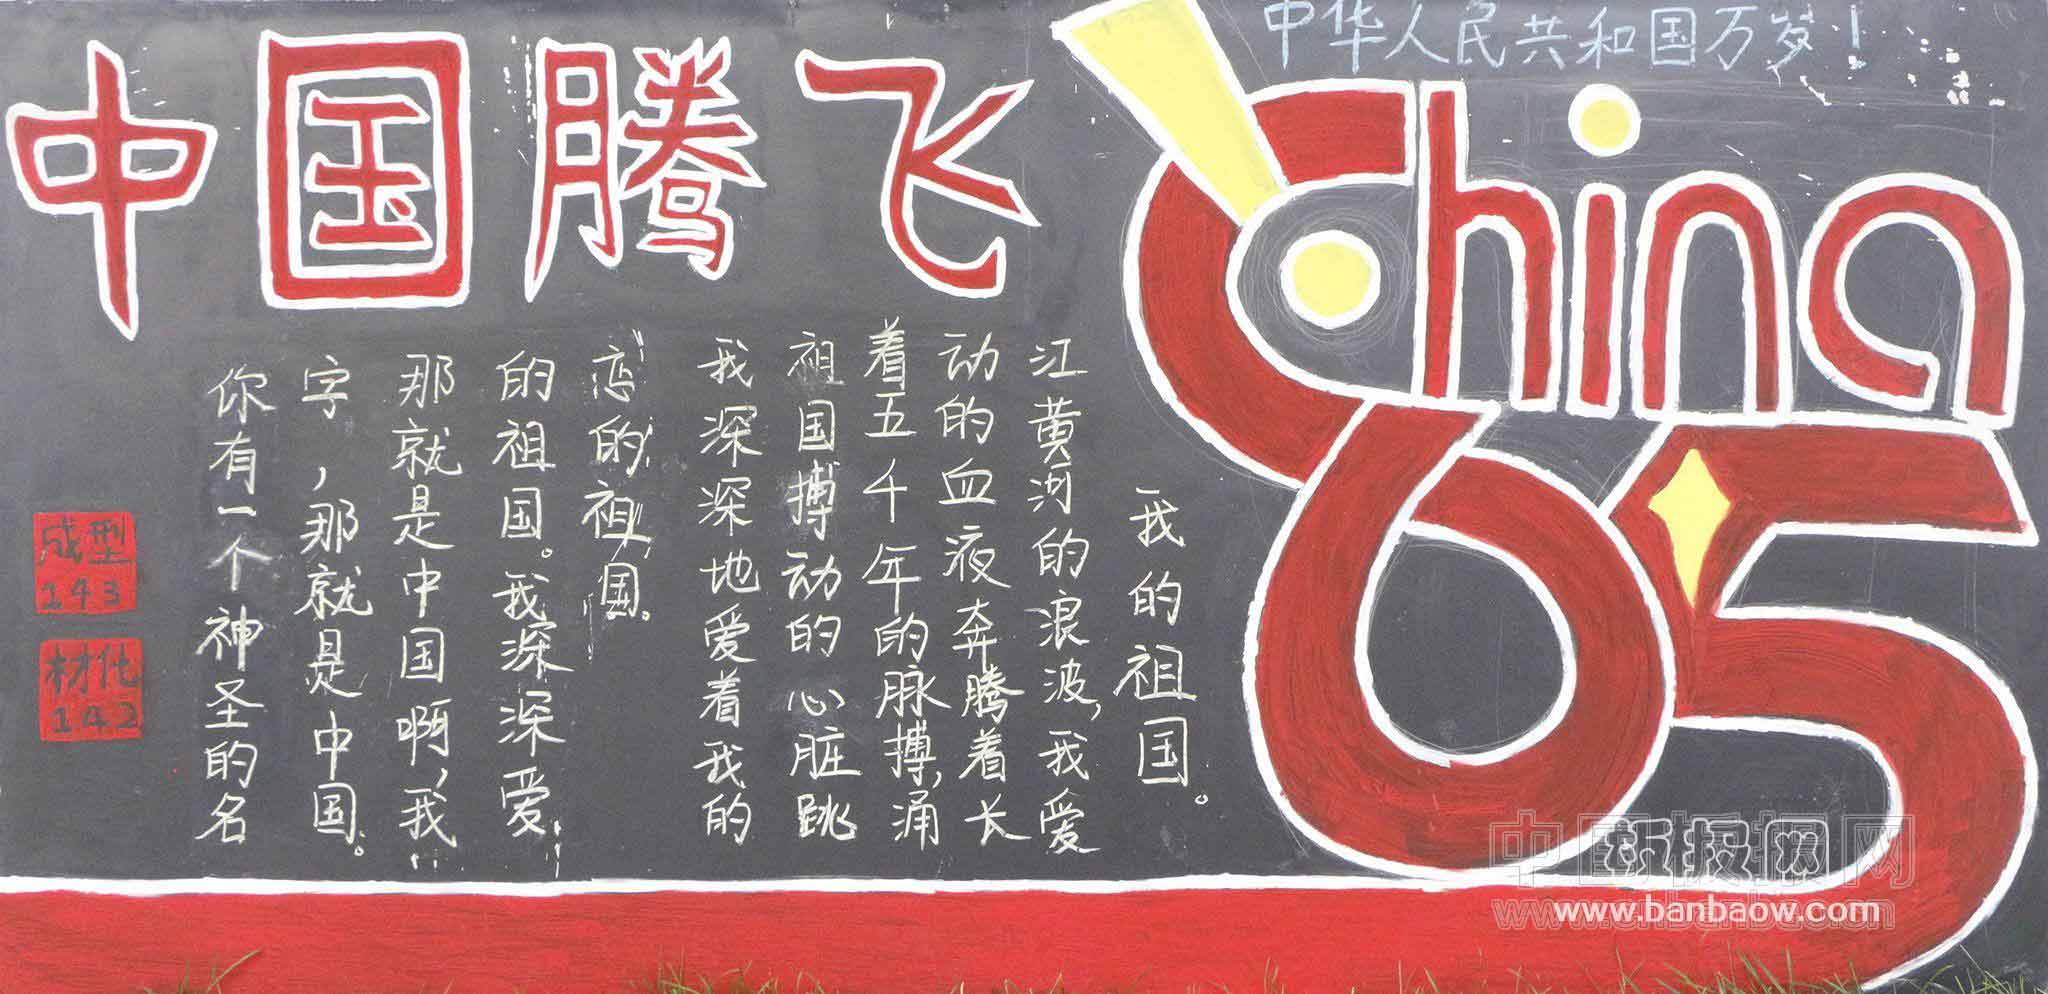 中国腾飞
中华人民共和国万岁!
China
65
你有一个神圣的名
字,那就是中国。
那就是中国啊,我
的祖国。我深深爱
恋的祖国。
我深深地爱着我的
祖国搏动的心脏跳
着五千年的脉搏,涌
动的血液奔腾着长
江黄河的浪波,我爱
我的祖国。
成型
143
材化
142
www.banbaow.com